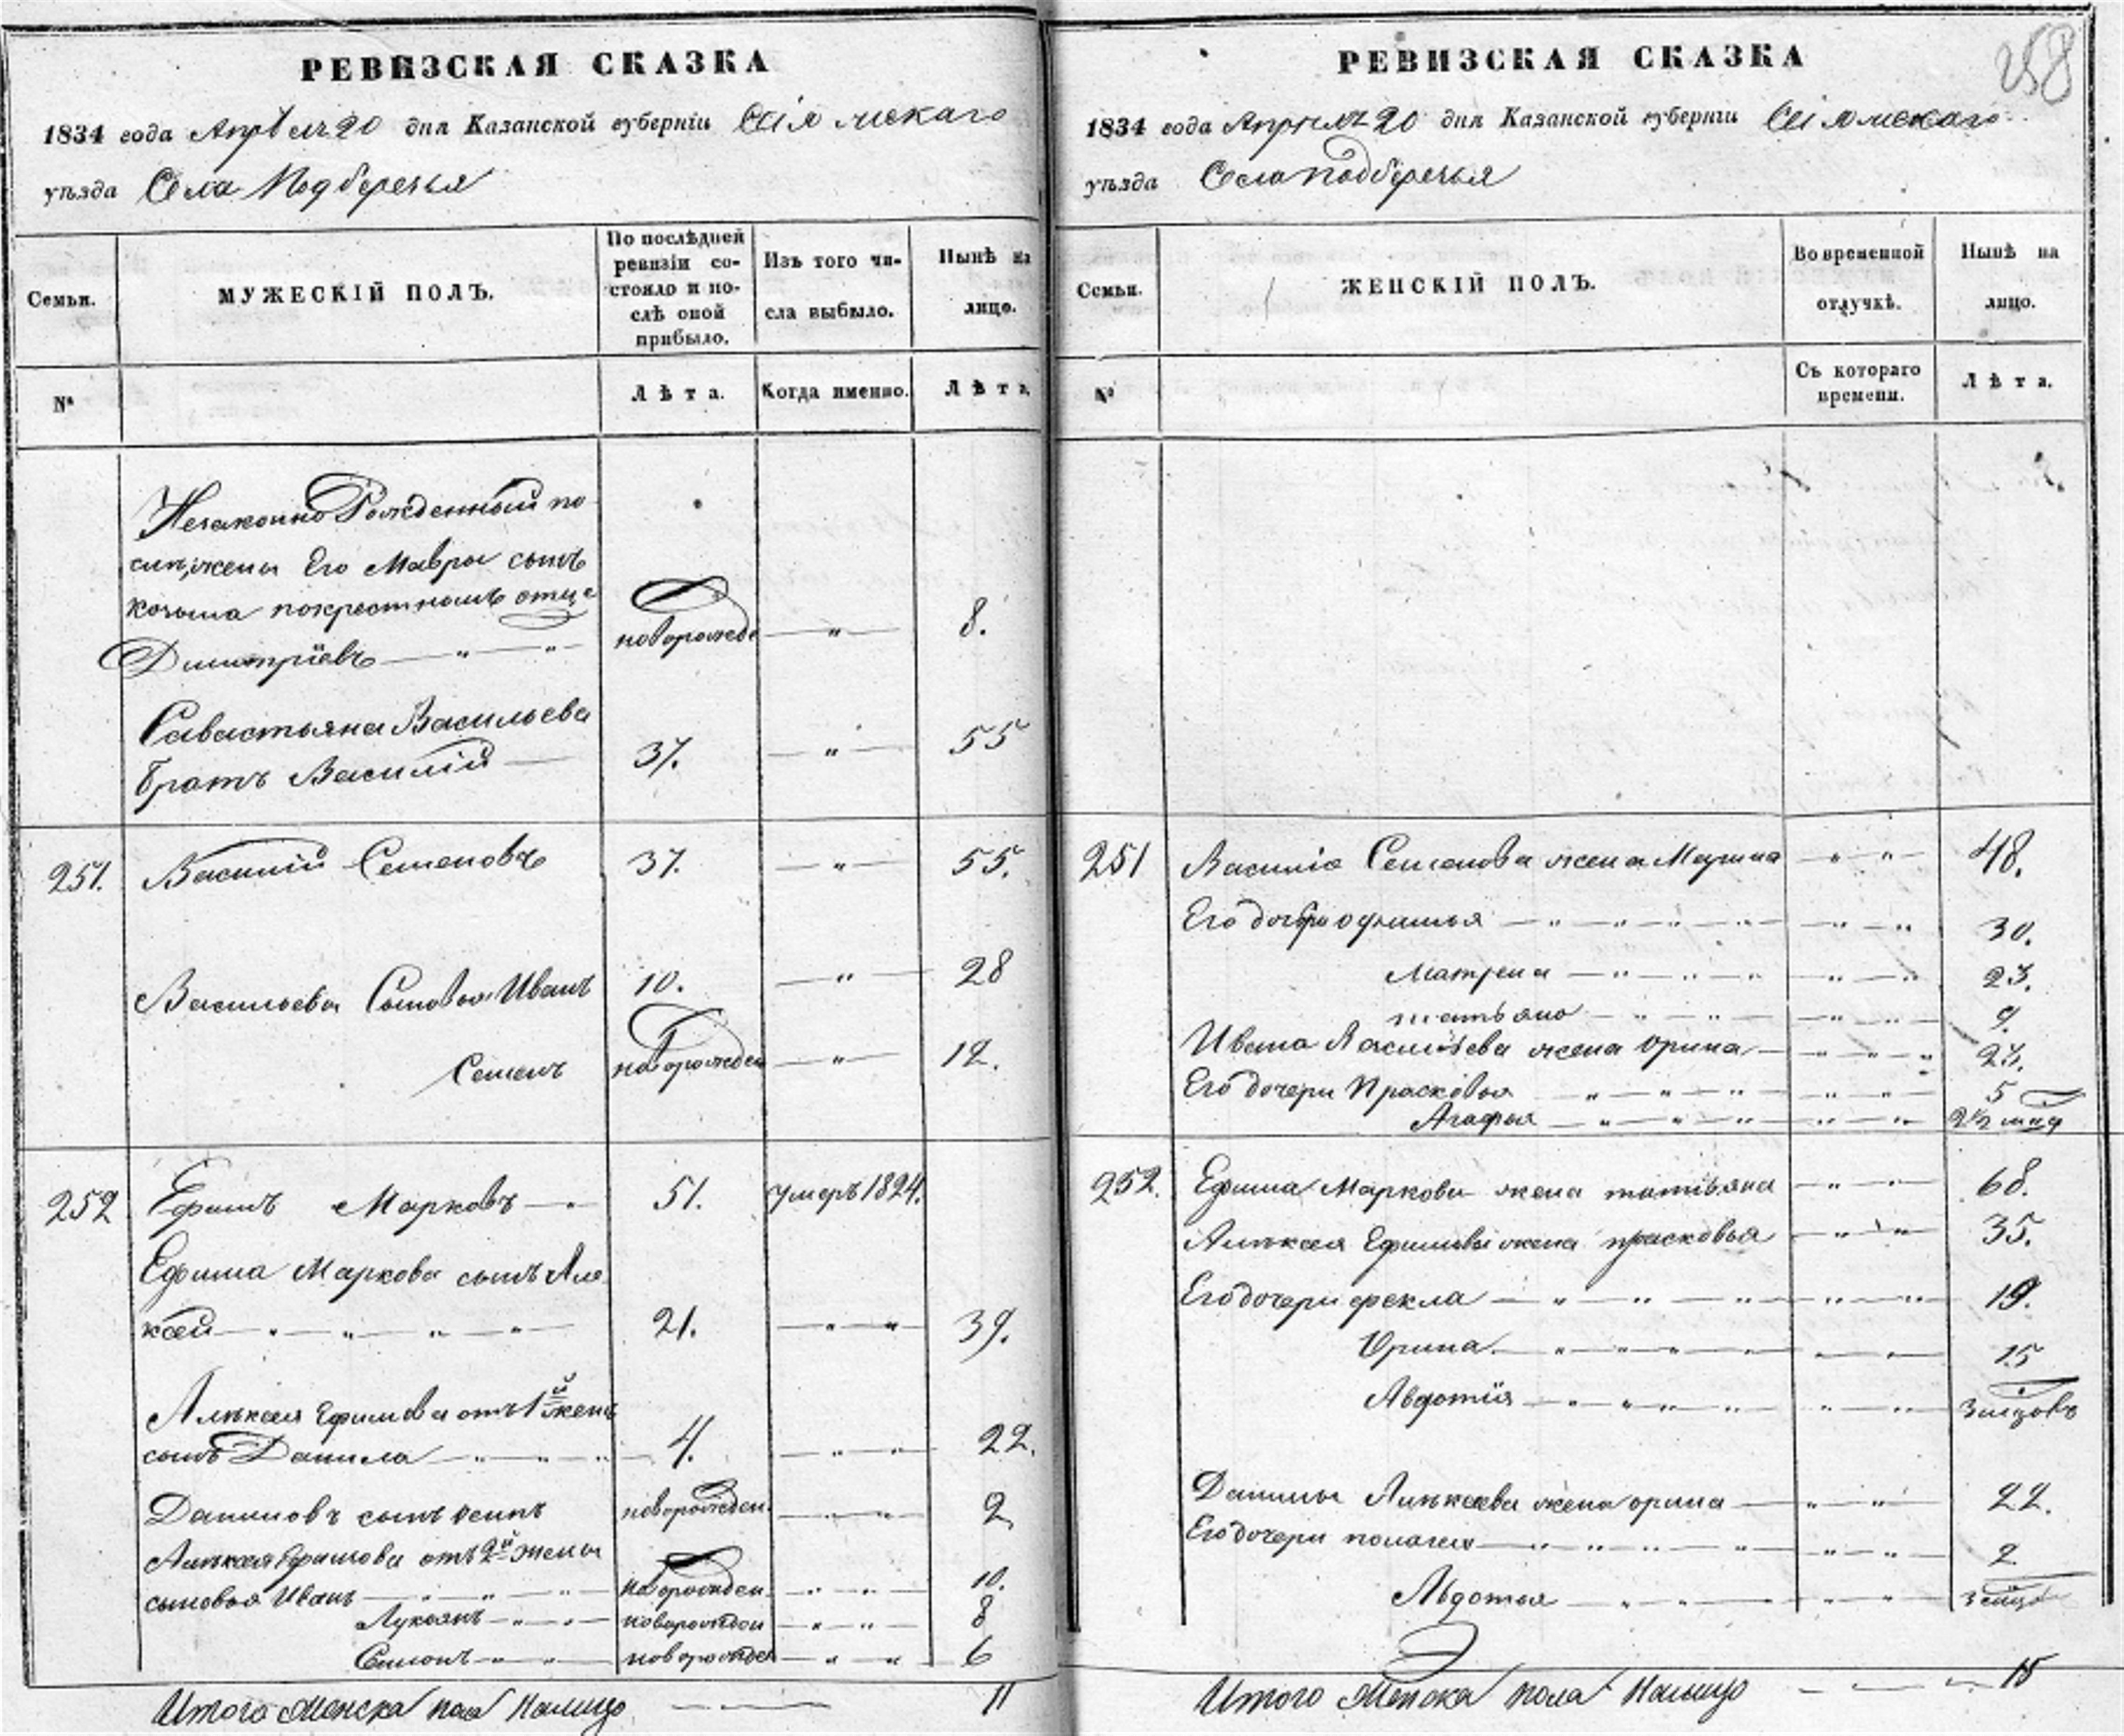 РЕВИЗСКАЯ СКАЗКА
1834 года Апреля 20 дня Казанской губерніи
уѣзда Села Подберезья
Семьи.
МУЖЕСКІЙ ПОЛЪ.
По послѣдней
ревизіи со-
стояло и по-
слѣ оной
прибыло.
Изъ того чи-
сла выбыло.
Нынѣ на
лицо.
№
Лѣта.
Когда именно.
Лѣта.
Незаконно Рожденный по
жены Его Мавры сынъ
козьма покрестномъ отце
Димитріевъ — " — "
новорожде — " — 8.
Савастьяна Васильева
братъ Василій — 37. — " — 55
251. Василій Семеновъ 37. — " — 55.
Васильева Сыновья Иванъ 10. — " — 28
Семенъ новорожден — " — 12.
252 Ефимъ Марковъ — " 51. умеръ 1824.
Ефима Маркова сынъ Але
ксей — " — " — " — " 21. — " — " 39.
Алексея Ефимова отъ 1й жены
сынъ Данила — " — " — " — 4. — " — " 22.
Даниловъ сынъ осипъ новорожден. — " — " 2
Алексея Ефимова отъ 2й жены
сыновья Иванъ — " — " — " новорожден. — " — " 10.
Лукьянъ — " — " новорожден — " — " 8
Симонъ — " — " новорожде — " — " 6
Итого Менска пола Налицо — — — 11
258
РЕВИЗСКАЯ СКАЗКА
1834 года Апреля 20 дня Казанской губерніи
уѣзда Села Подберезья
Семьи.
ЖЕНСКІЙ ПОЛЪ.
Во временной
отлучкѣ.
Нынѣ на
лицо.
№
Съ котораго
времени.
Лѣта.
251 Василия Семенова жена Марина — " — " 48.
Его — " — " — " — " — " — " 30.
Матрена — " — " — " — " — " 23.
татьяна — " — " — " — " 9.
Ивана Васильева жена орина — " — " — " 27.
Его дочери Прасковья — " — " — " — " — " 5
Агафья — " — " — " — " — " 2½
252. Ефима Маркова жена татьяна — " — " 68.
Алексея Ефимова жена прасковья — " — " 35.
Его дочери фекла — " — " — " — " — " 19.
Орина — " — " — " — " — " — " 15
Авдотія — " — " — " — " — " — " 3
Данилы Алексеева жена орина — " — " 22.
Его дочери — " — " — " — " — " — " 2
Авдотья — " — " — " — " — " 3
Итого Женска пола Налицо — — — 15